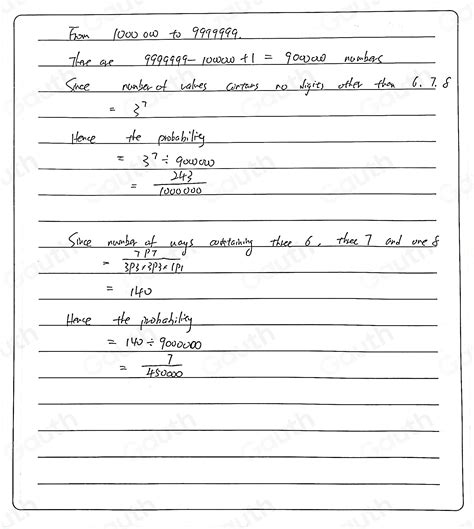 From 1000000 to 9999999.
There are 9999999 - 1000000 + 1 = 9000000 numbers
Since number of values contains no digits other than 6. 7. 8
= 3^7
Hence the probability
= 3^7 ÷ 9000000
= 243/1000000
Since number of ways containing three 6, three 7 and one 8
= 7P7/(3P3×3P3×1P1)
= 140
Hence the probability
= 140 ÷ 9000000
= 7/450000
Gauth